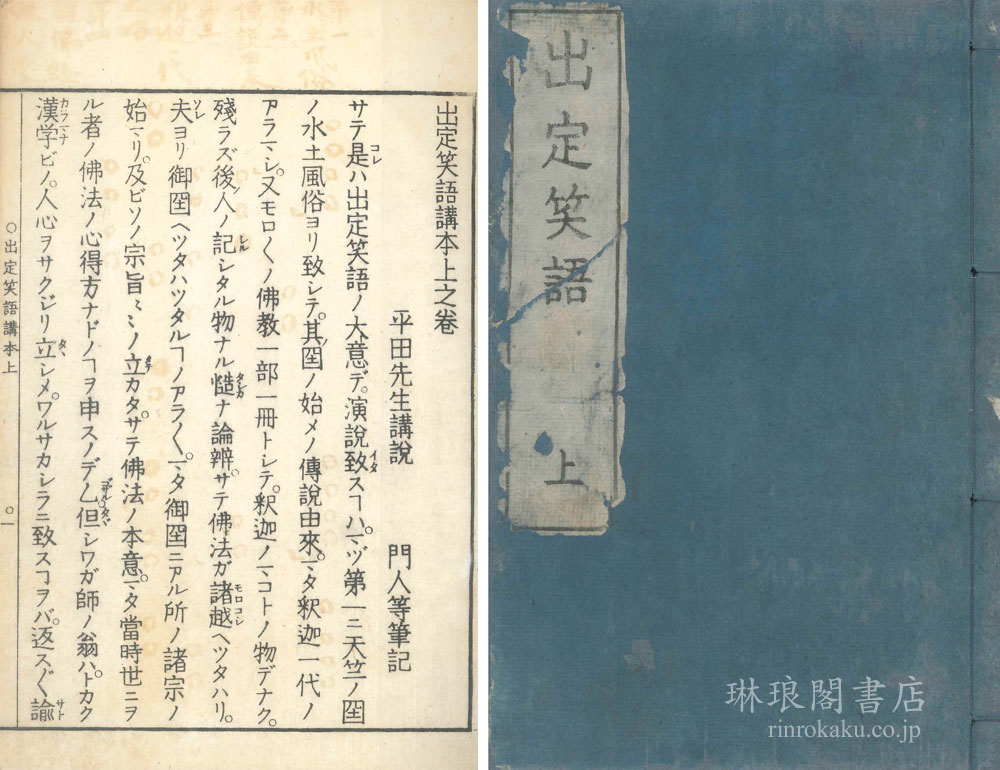 出定笑語講本上之卷
平田先生講說 門人等筆記
サテ是コレハ出定笑語ノ大意デ。演說致イタスヿハ。マヅ第一ニ天竺ノ国
ノ水土風俗ヨリ致シテ。其国ノ始メノ傳說由來。マタ釈迦一代ノ
アラマシ。又モロ〳〵ノ佛教一部一冊トシテ。釈迦ノマコトノ物デナク。
殘ラズ後ノ人ノ記シルシタル物ナル慥タシカナ論辨。サテ佛法ガ諸越モロコシヘツタハリ。
夫ソレヨリ御国ヘツタハツタルヿノアラ〳〵。マタ御国ニアル所ノ諸宗ノ
始マリ。及ビソノ宗旨〻〻ノ立タテカタ。サテ佛法ノ本意。マタ當時世ニヲ
ル者ノ佛法ノ心得方ナドノヿヲ申スノデ。但タヾシワガ師ノ翁ハ。トカク
漢学カラマナビノ。人心ヲサクジリ立タヽシメ。ワルサカシラニ致スヿヲバ。返ス〴〵諭サト
○出定笑語講本上 ○一
出定笑語 上
琳琅閣書店
rinrokaku.co.jp